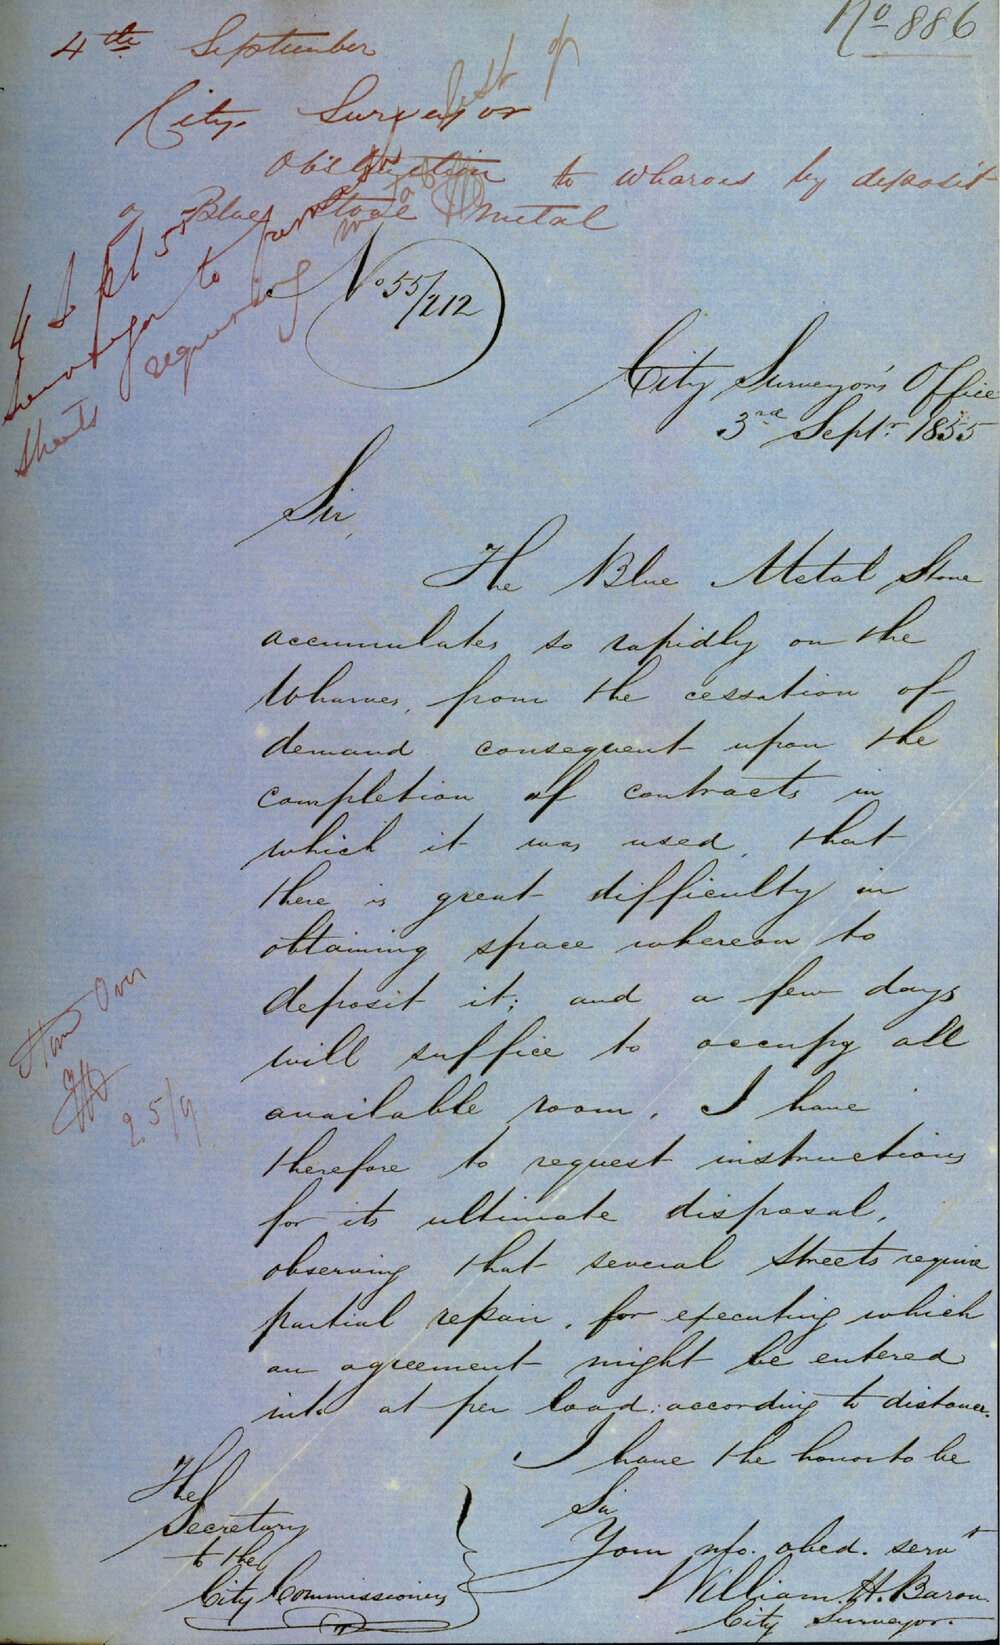 No 886
4th September
City Surveyor
Obstruction to Wharves by deposit
of Blue Stone Metal
4 Sept 55
Surveyor to furnish list of
Streets requiring
No 55/212
City Surveyor's Office
3rd Septr 1855
Sir,
The Blue Metal Stone
accumulates so rapidly on the
Wharves, from the cessation of
demand consequent upon the
completion of contracts in
which it was used, that
there is great difficulty in
obtaining space whereon to
deposit it; and a few days
will suffice to occupy all
available room. I have
therefore to request instructions
for its ultimate disposal,
observing that several Streets require
partial repair, for executing which
an agreement might be entered
into at per load: according to distance.
I have the honor to be
Sir
Your mo. obed. servt
William. H. Baron.
City Surveyor.
The
Secretary
to the
City Commissioners
Over
25/9